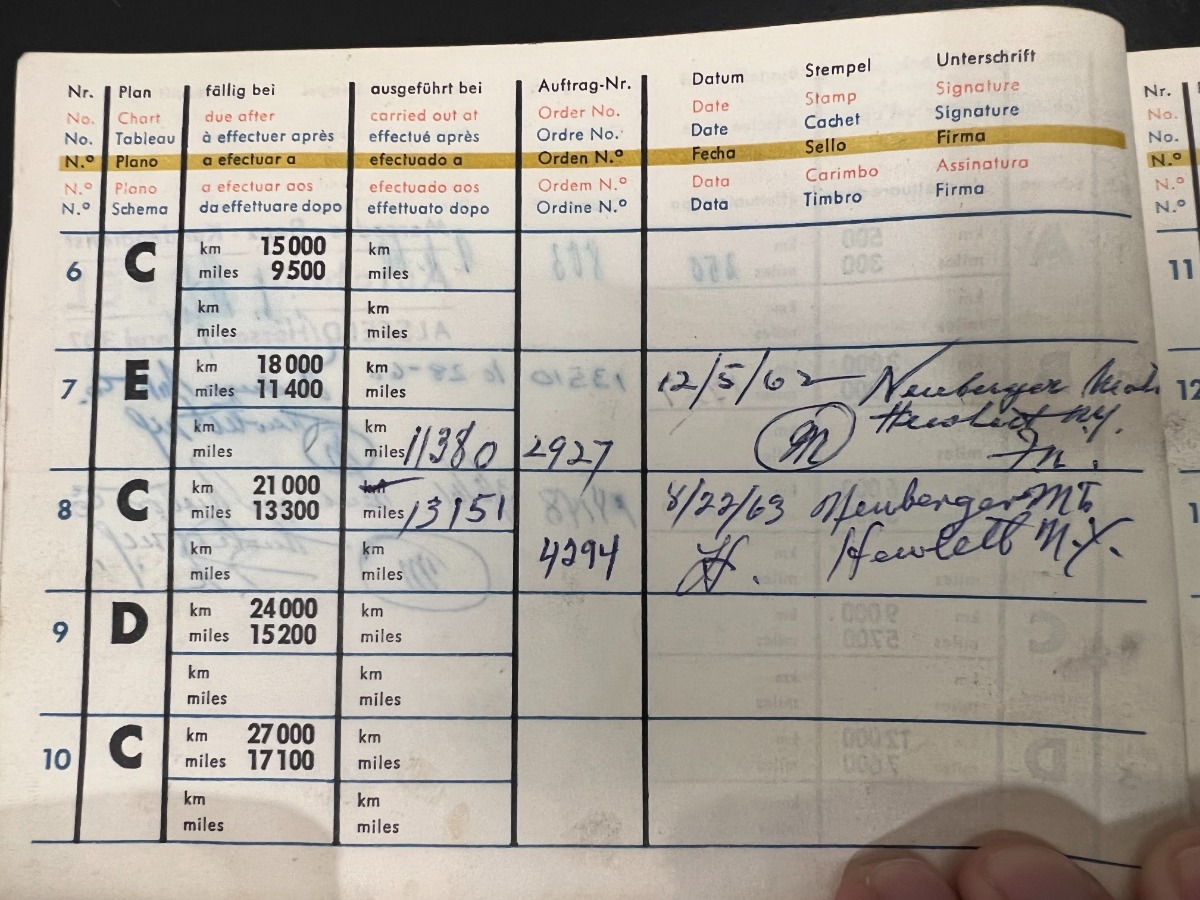 Nr. Plan fällig bei ausgeführt bei Auftrag-Nr. Datum Stempel Unterschrift Nr.
No. Chart due after carried out at Order No. Date Stamp Signature No.
No. Tableau à effectuer après effectué après Ordre No. Date Cachet Signature No.
N.º Plano a efectuar a efectuado a Orden N.º Fecha Sello Firma N.º
N.º Plano a efectuar aos efectuado aos Ordem N.º Data Carimbo Assinatura N.º
N.º Schema da effettuare dopo effettuato dopo Ordine N.º Data Timbro Firma N.º
6 C km 15 000 km
miles 9 500 miles 11
km km
miles miles
7 E km 18 000 km 12/5/62 Neuberger
miles 11 400 miles 12
km km N.Y.
miles miles 11380 2927 M
8 C km 21 000 km
miles 13 300 miles 13151 8/22/63 Neuberger
km km 4294 H. Hewlett N.Y.
miles miles
9 D km 24 000 km
miles 15 200 miles
km km
miles miles
10 C km 27 000 km
miles 17 100 miles
km km
miles miles